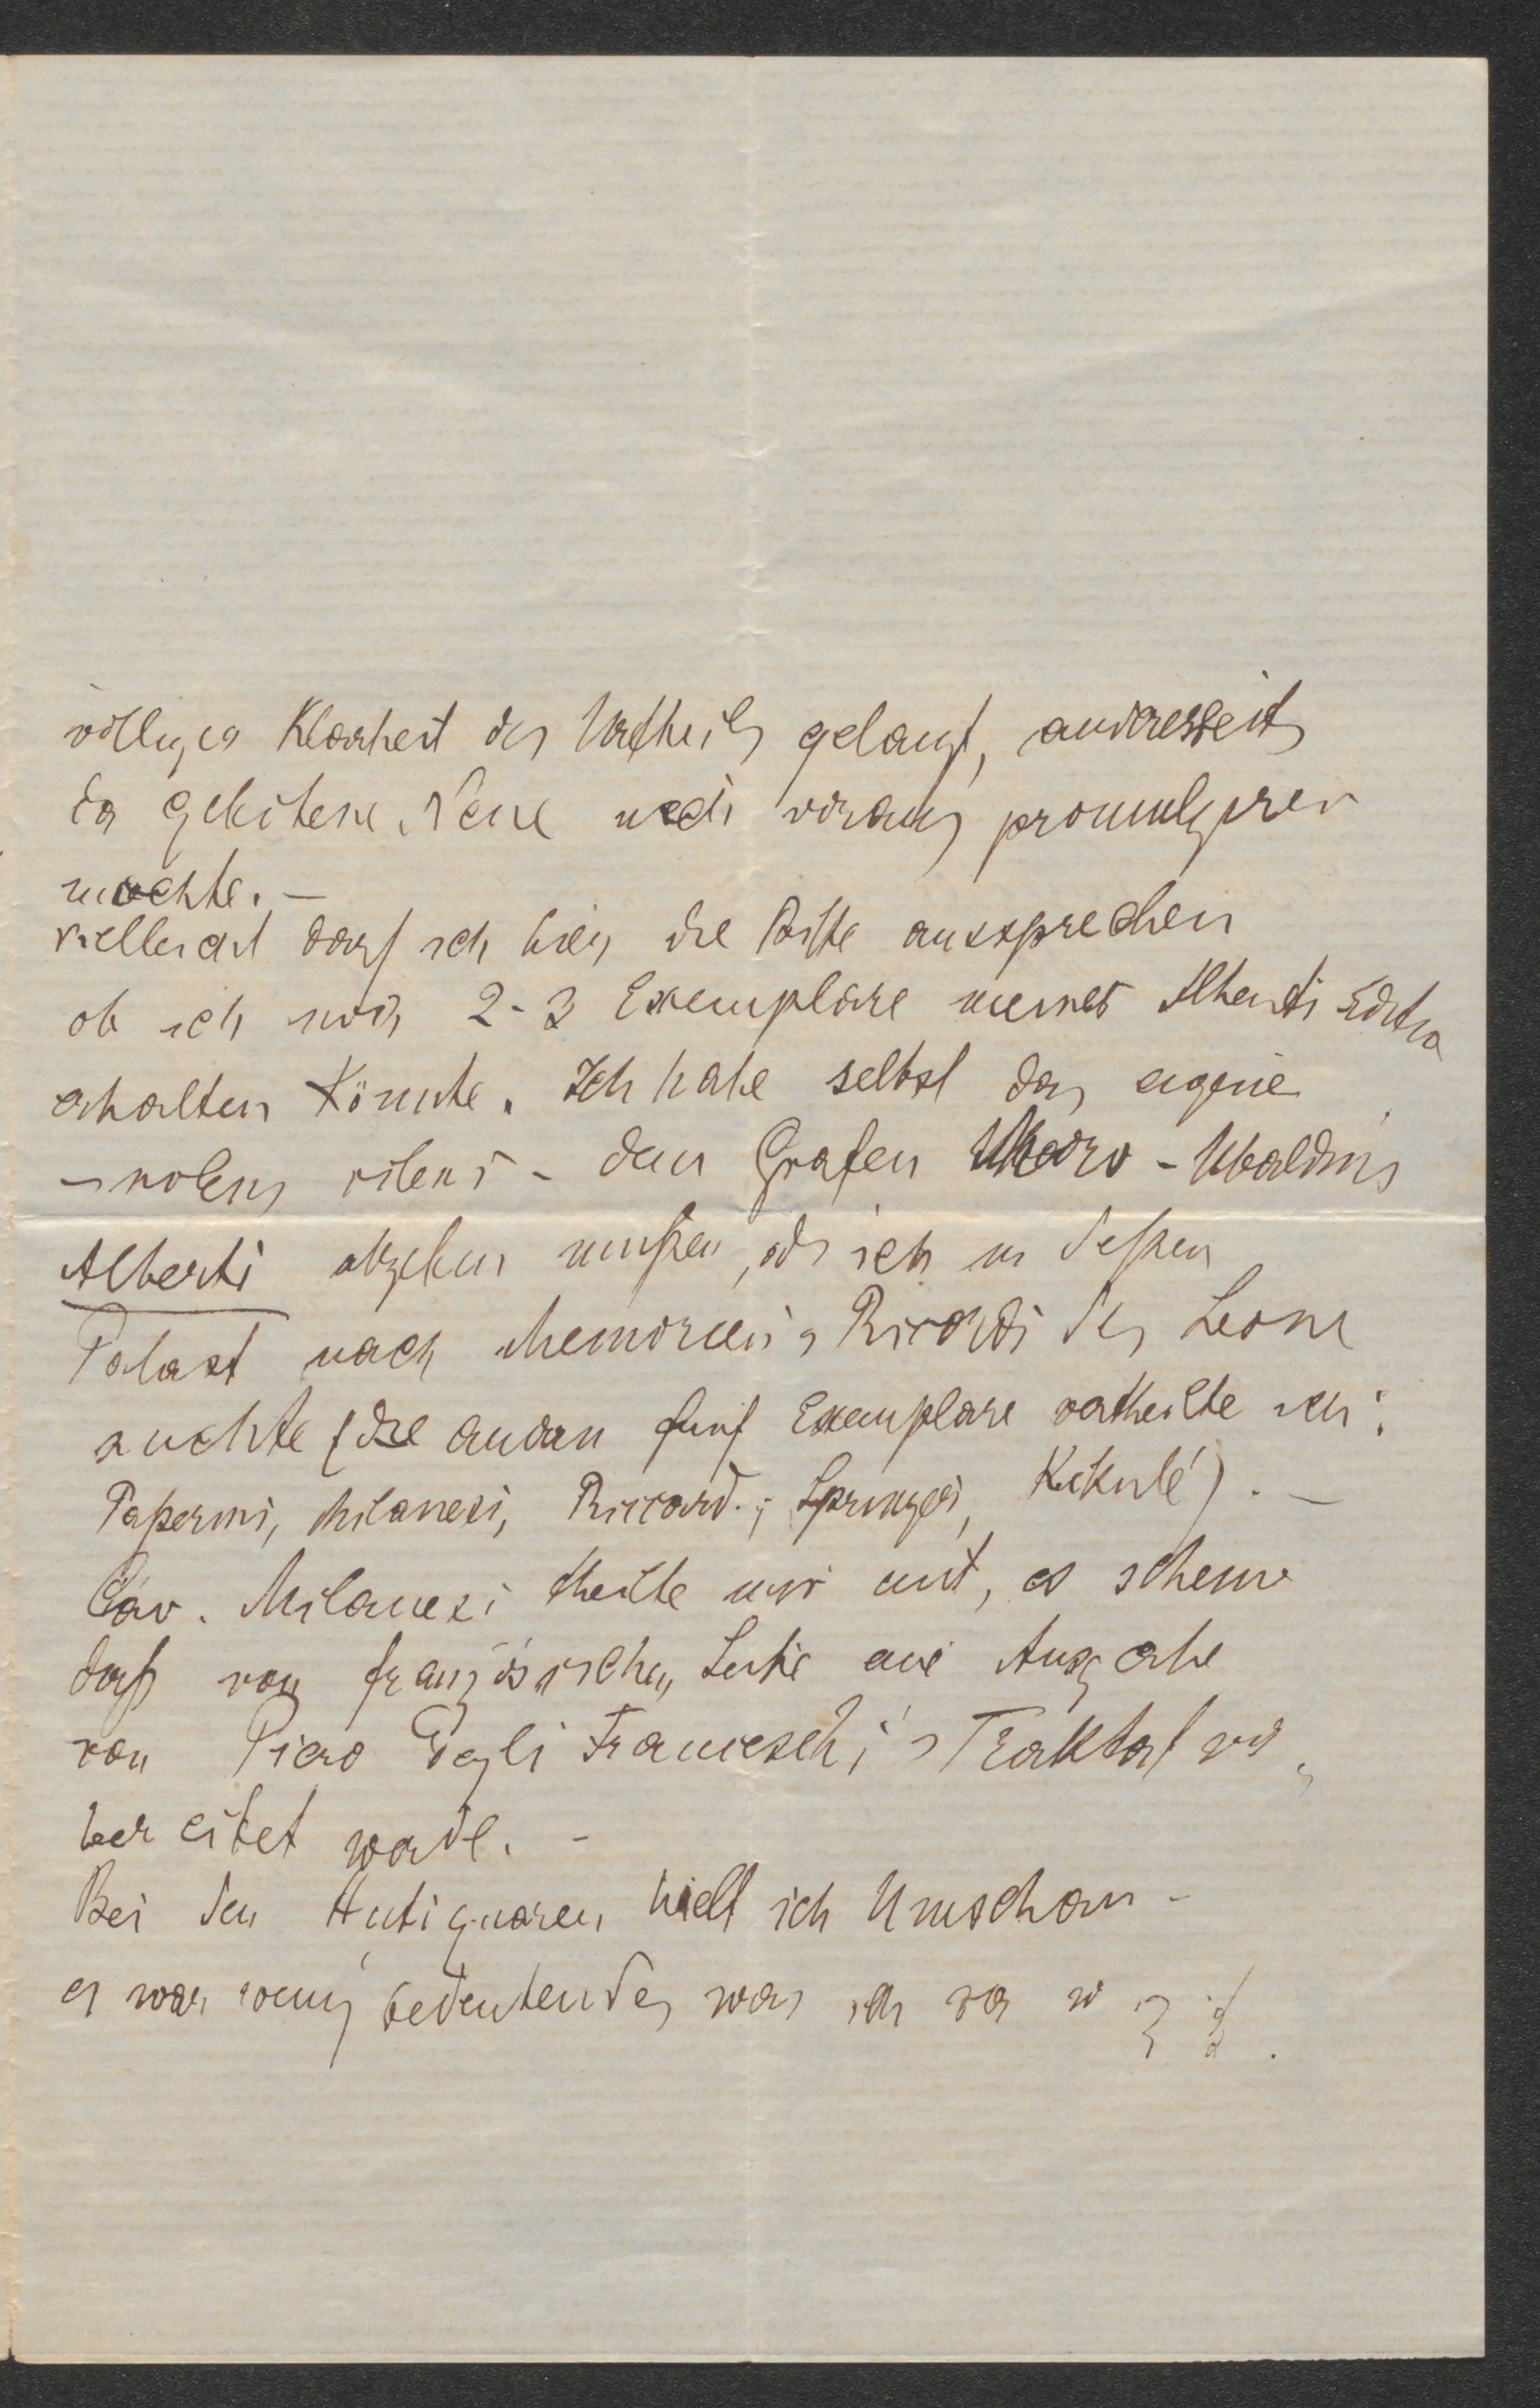 völliger Klarheit des Urtheils gelangt, anderseits
das gebotene Neue nicht voraus promulgiren
möchte. —
Vielleicht darf ich hier die Bitte aussprechen
ob ich noch 2-3 Exemplare meines Alberti Edition
erhalten könnte. Ich habe selbst das eigene
- nolens volens - dem Grafen Mori-Ubaldini
Alberti abgeben müßen, als ich in deßen
Palast nach Memorien, Ricordi des Leone
suchte (die andern fünf Exemplare vertheilte ich:
Paperini, Milanesi, Riccard.; Springer, Kekulé). —
Cav. Milanesi theilte mir mit, es scheine
daß von französischer Seite eine Ausgabe
von Piero degli Franceschi's Traktat vor-
bereitet werde. -
Bei den Antiquaren hielt ich Umschau -
es war wenig bedeutendes was ich